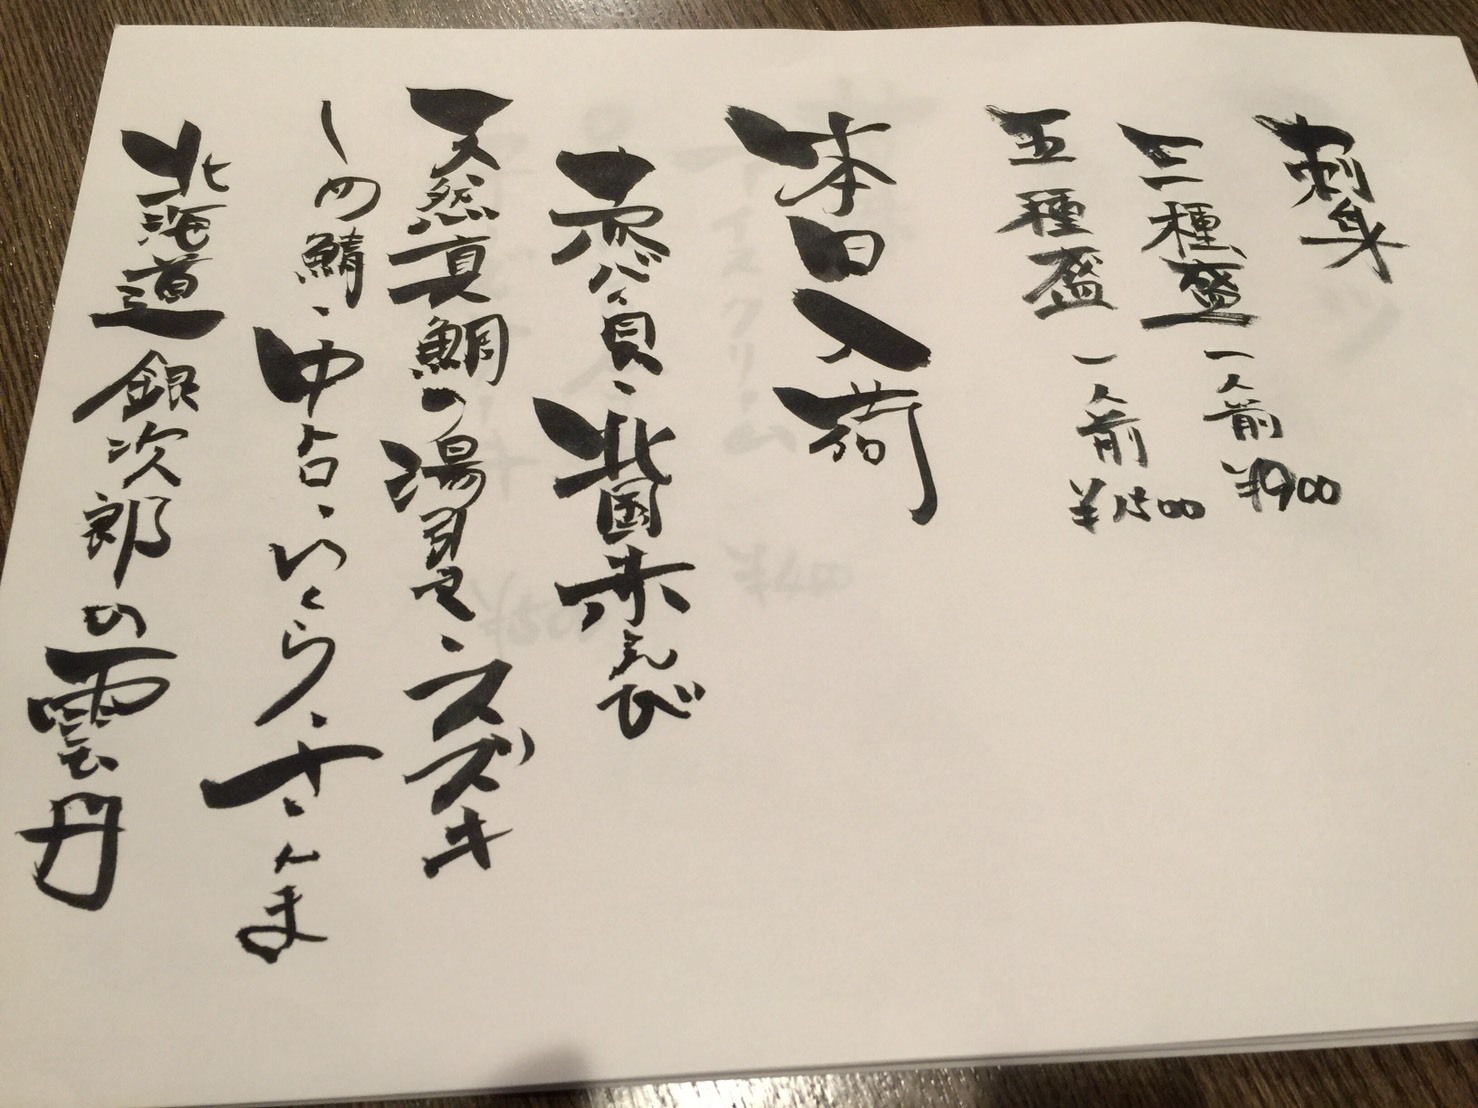 刺身
三種盛 一人前 ¥900
五種盛 一人前 ¥1500
本日入荷
赤バイ貝、北国赤えび
天然真鯛の湯引き、スズキ
しめ鯖、中トロ、いくら、さんま
北海道 銀次郎の雲丹